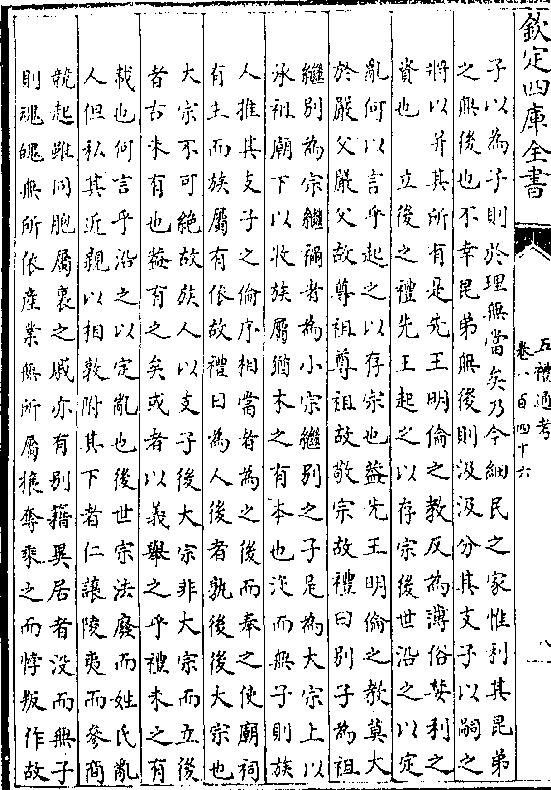 欽定四庫全書
五禮通考
卷一百四十六
八
子以為子則於理無當矣乃今細民之家惟利其昆弟
之無後也不幸昆弟無後則汲汲分其支子以嗣之
將以并其所有是先王明倫之教反為薄俗婪利之
資也 立後之禮先王起之以存宗後世沿之以定
亂何以言乎起之以存宗也葢先王明倫之教莫大
於嚴父嚴父故尊祖尊祖故敬宗故禮曰別子為祖
繼別為宗繼禰者為小宗繼別之子是為大宗上以
承祖廟下以收族屬猶木之有本也沒而無子則族
人推其支子之倫序相當者為之後而奉之使廟祠
有主而族屬有依故禮曰為人後者孰後後大宗也
大宗不可絶故族人以支子後大宗非大宗而立後
者古未有也葢有之矣或者以義舉之乎禮未之有
載也何言乎沿之以定亂也後世宗法廢而姓氏亂
人但私其近親以相敦附其下者仁讓陵夷而參商
競起雖同胞屬裏之戚亦有別籍異居者沒而無子
則魂魄無所依産業無所屬攘奪乘之而悖叛作故